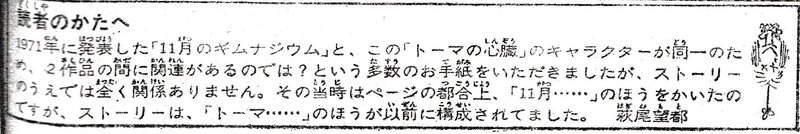 読者のかたへ
1971年に発表した「11月のギムナジウム」と、この「トーマの心臓」のキャラクターが同一のた
め、2作品の間に関連があるのでは?という多数のお手紙をいただきましたが、ストーリー
のうえでは全く関係ありません。その当時はページの都合上、「11月……」のほうをかいたの
ですが、ストーリーは、「トーマ……」のほうが以前に構成されてました。 萩尾望都